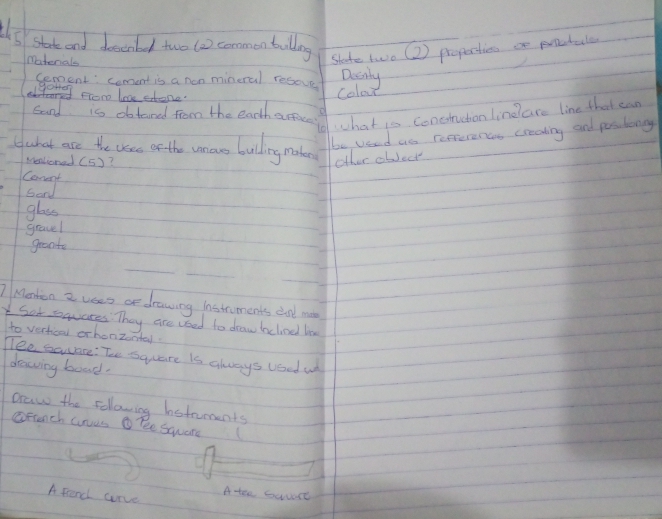 5 State and described two (2) common building
materials
Cement: cement is a non mineral resource
gotten from limestone.
Sand is obtained from the earth surface
6 what are the uses of the various building material
mentioned (5)?
Cement
Sand
glass
gravel
geants
7 Mention 2 uses of drawing instruments and
Set squares: They are used to draw inclined line
to vertical or horizontal.
Tee square: Tee square is always used
drawing board.
Draw the following Instruments
French curves Tee Square
A french curve A tee square
State two (2) properties of
Density
Colour
what is construction line? are line that can
be used as refferences creating and positioning
other object